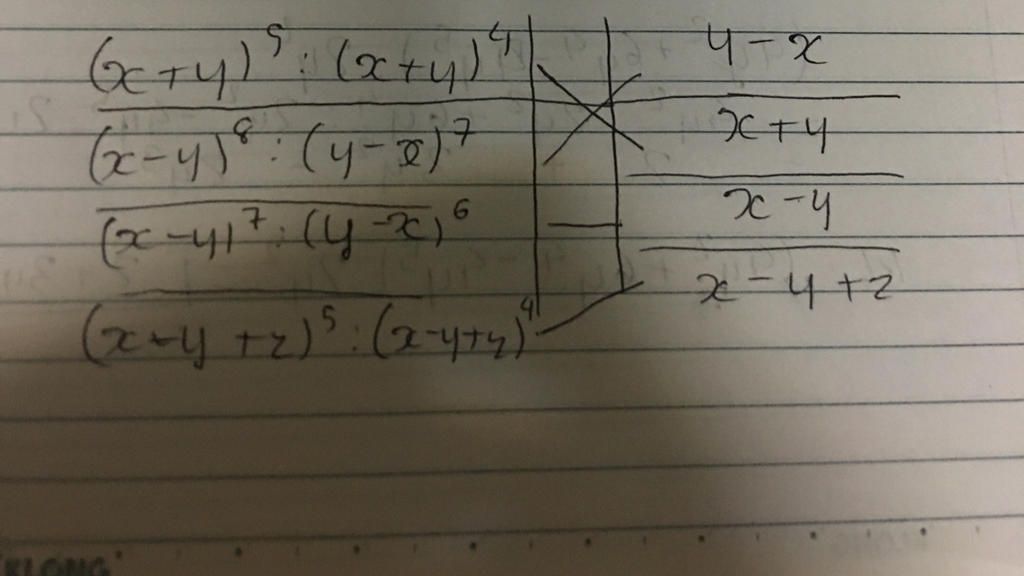 (x+y)⁵ : (x+y)⁴ y-x
(x-y)⁸ : (y-x)⁷ x+y
(x-y)⁷ : (y-x)⁶ x-y
(x-y+z)⁵ : (x-y+z)⁴ x-y+z
KLONG